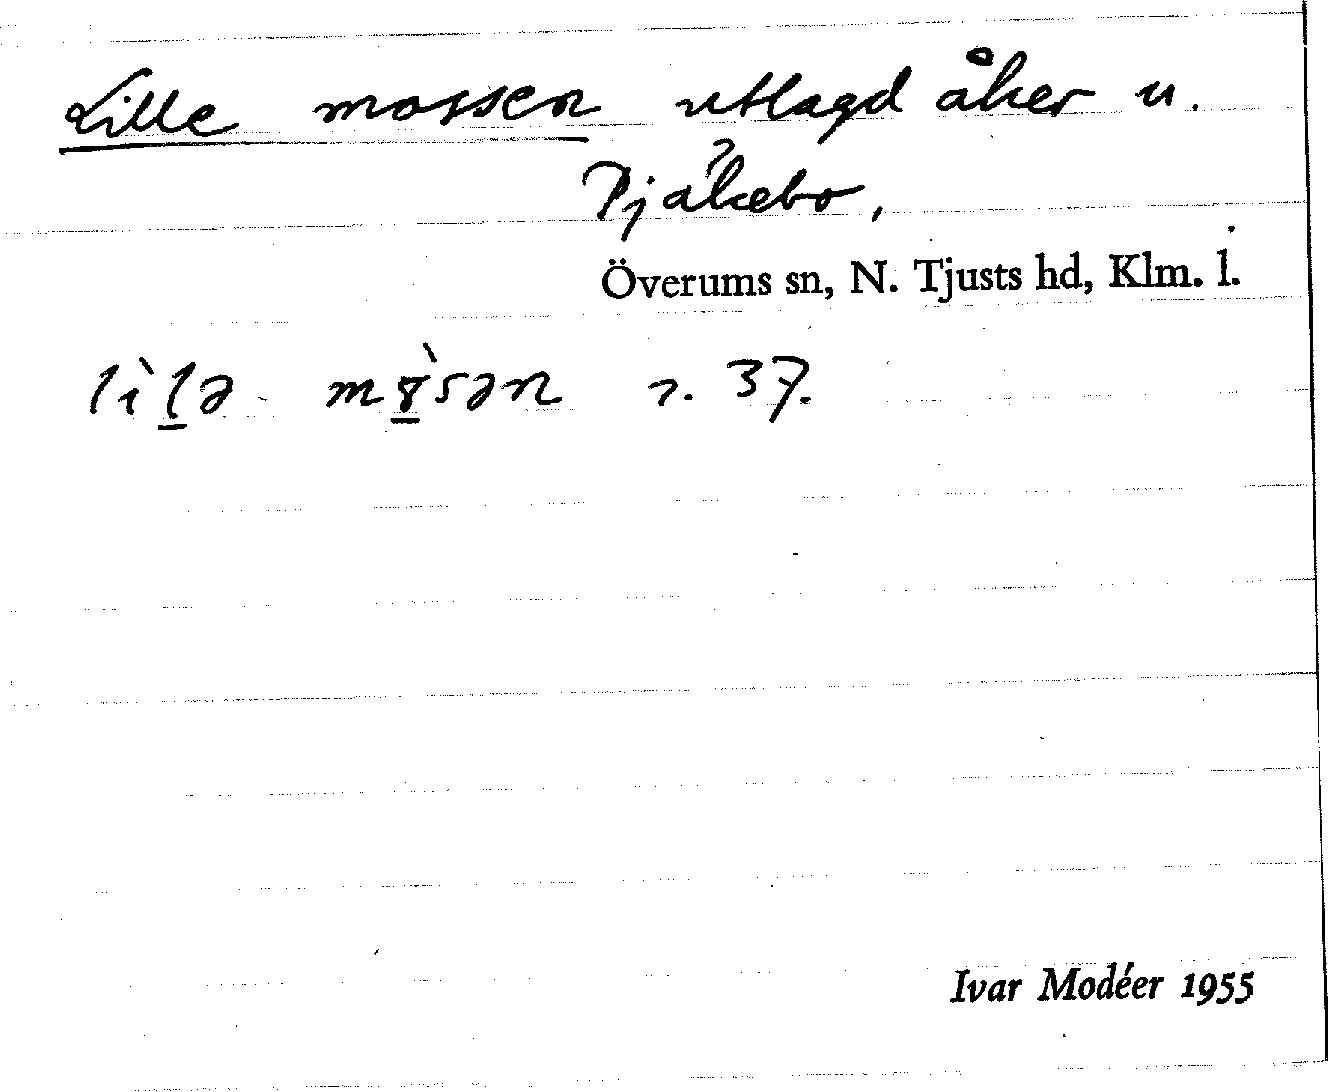 Lille mossen utlagd åker u.
Pjåkebo,
Överums sn, N. Tjusts hd, Klm. l.
lìlə mɤ̀sən r. 37.
Ivar Modéer 1955